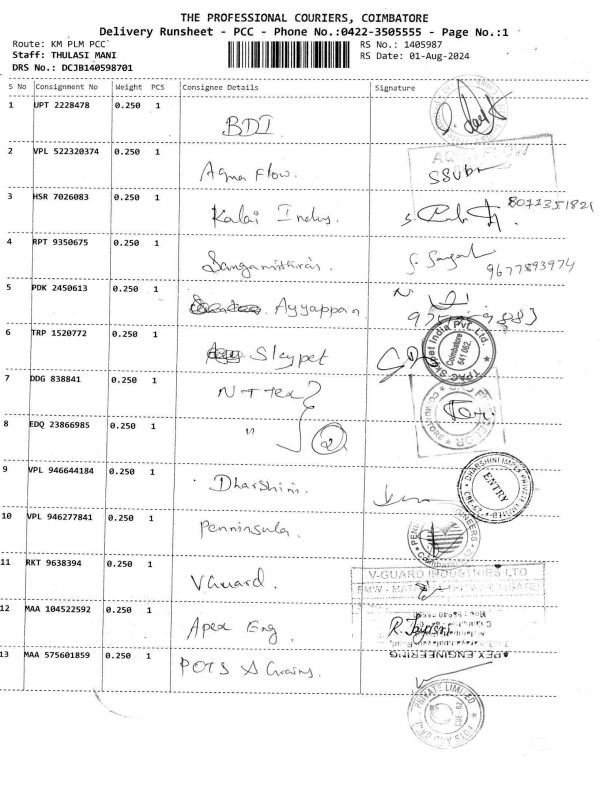 THE PROFESSIONAL COURIERS, COIMBATORE
Delivery Runsheet - PCC - Phone No.:0422-3505555 - Page No.:1
Route: KM PLM PCC
RS No.: 1405987
Staff: THULASI MANI
RS Date: 01-Aug-2024
DRS No.: DCJB140598701
S No Consignment No Weight PCS Consignee Details Signature
1 UPT 2228478 0.250 1
BDI
2 VPL 522320374 0.250 1
Aqua Flow.
3 HSR 7026083 0.250 1
Kalai Indus.
8012351821
4 RPT 9350675 0.250 1
9677893974
5 PDK 2450613 0.250 1
Ayyappan
6 TRP 1520772 0.250 1
Skypet
TPAC Skypet India Pvt. Ltd.
Coimbatore
641 062.
7 DDG 838841 0.250 1
NTTex
8 EDQ 23866985 0.250 1
" 2
9 VPL 946644184 0.250 1
Dharshini.
ENTRY
10 VPL 946277841 0.250 1
Penninsula.
11 RKT 9638394 0.250 1
VGuard.
V-GUARD INDUSTRIES LTD
12 MAA 104522592 0.250 1
Apex Eng.
R. Jayasri
APEX ENGINEERING
13 MAA 575601859 0.250 1
POTS & Grains.
PRIVATE LIMITED
CBE-62